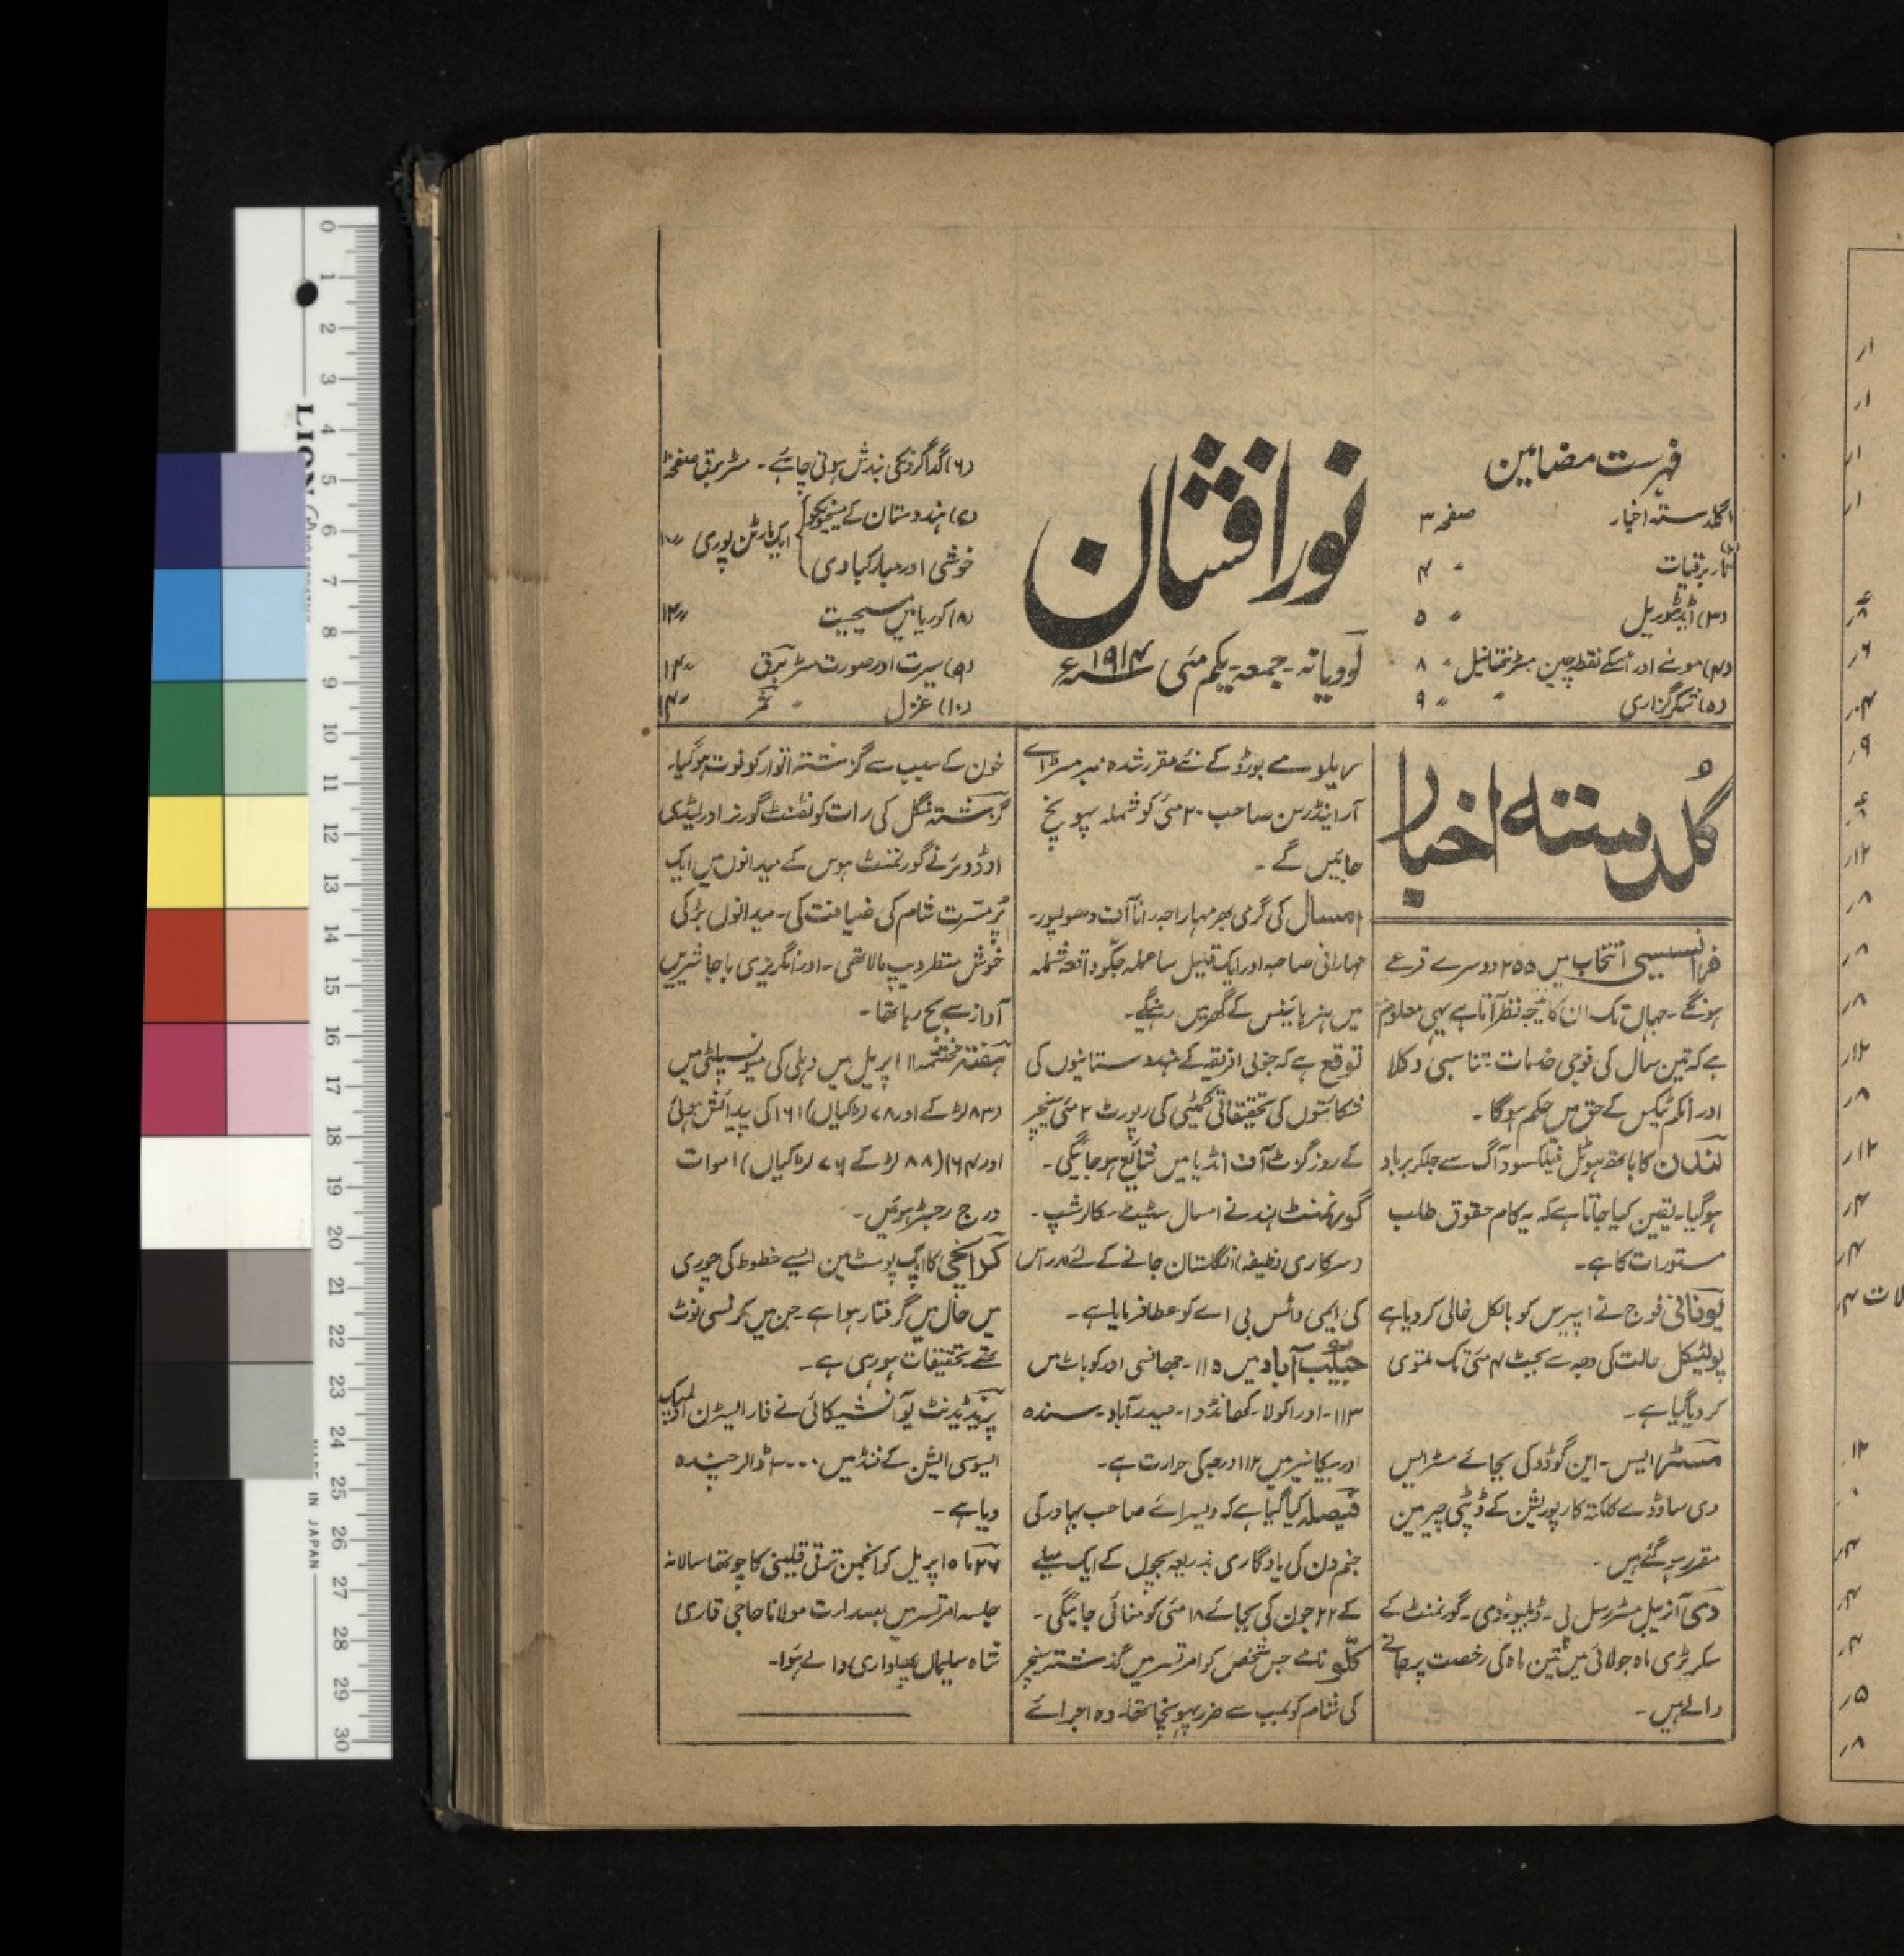 فہرست مضامین
گلدستہ اخبار صفحہ ۳
تار برقیات " ۴
(۳) اڈیٹوریل " ۵
(۴) مونے اور اُسکے نقطہ چین مسٹر نتھانیل " ۸
(۵) شکرگزاری " " ۹
نورافشاں
لودیانہ - جمعہ - یکم مئی ۱۹۱۴ء
(۶) گداگرونکی بندش ہونی چاہئے - مسٹر برق صفحہ
(۷) ہندوستان کے مسیحیونکو
خوشی اور مبارکبادی
ایک مارٹن پوری " ۱۰
(۸) کوریا میں مسیحیت " ۱۲
(۹) سیرت اور صورت مسٹر برق " ۱۴
(۱۰) غزل " " ۱۴
گلدستہ اخبار
فرانسیسی انتخاب میں ۲۵۵ دوسرے قرعے
ہونگے - جہاں تک ان کا نتیجہ نظر آتا ہے یہی معلوم
ہے کہ تین سال کی فوجی خدمات - تناسبی وکلا
اور انکم ٹیکس کے حق میں حکم ہوگا -
لندن کا باتھ ہوٹل فیلکسود آگ سے جلکر برباد
ہوگیا - یقین کیا جاتا ہے کہ یہ کام حقوق طلب
مستورات کا ہے -
یونانی فوج نے ایپرس کو بالکل خالی کردیا ہے
پولٹیکل حالت کی وجہ سے بجٹ ۴ مئی تک ملتوی
کردیا گیا ہے -
مسٹر ایس - این گوڈو کی بجائے مسٹر ایس
دی ساوڈے کلکتہ کارپوریشن کے ڈپٹی چیرمین
مقرر ہوگئے ہیں -
دی آنریبل مسٹر رسل پی - ڈبلیو - ڈی - گورنمنٹ کے
سکرٹری ماہ جولائی میں تین ماہ کی رخصت پر جانے
والے ہیں -
ریلوے بورڈ کے نئے مقرر شدہ ممبر مسٹر اے
آر اینڈرسن صاحب ۲۰ مئی کو شملہ پہونچ
جائیں گے -
امسال کی گرمی بھر مہاراجہ رانا آف دھولپور -
مہارانی صاحبہ اور ایک قلیل سا عملہ جکّو واقعہ شملہ
میں ہز ہائینس کے گھر میں رہینگے -
توقع ہے کہ جنوبی افریقہ کے ہندوستانیوں کی
شکائتوں کی تحقیقاتی کمیٹی کی رپورٹ ۲ مئی سنیچر
کے روز گزٹ آف انڈیا میں شائع ہوجائیگی -
گورنمنٹ ہند نے امسال سٹیٹ سکالرشپ -
(سرکاری وظیفہ) انگلستان جانے کے لئے مدراس
کی ایمی دائس بی اے کو عطا فرمایا ہے -
جیکب آباد میں ۱۱۵ - جھانسی اور کوہاٹ میں
۱۱۳ - اور اکولا - کھانڈوا - حیدرآباد - سندہ
اور بیکانیر میں ۱۱۲ درجہ کی حرارت ہے -
فیصلہ کیا گیا ہے کہ ویسرائے صاحب بہادر کی
جنم دن کی یادگاری بذریعہ بچوں کے ایک میلے
کے ۲۲ جون کی بجائے ۱۸ مئی کو منائی جائیگی -
کلّو نامے جس شخص کو امرتسر میں گذشتہ سنیچر
کی شام کو بمب سے ضرر پہونچا تھا - وہ اجرائے
خون کے سبب سے گزشتہ اتوار کو فوت ہوگیا -
گزشتہ منگل کی رات کو لفٹنٹ گورنر اور لیڈی
اوڈوئر نے گورنمنٹ ہوس کے میدانوں میں ایک
پُر مسرت شام کی ضیافت کی - میدانوں بڑ کی
خوش منظر دیپ مالا تھی - اور انگریزی باجا شیریں
آواز سے بج رہا تھا -
ہفتہ مختتمہ ۱۱ اپریل میں دہلی کی میونسپلٹی میں
(۸۳ لڑکے اور ۷۸ لڑکیاں) ۱۶۱ کی پیدائش ہوئی
اور ۱۶۴ (۸۸ لڑکے ۷۶ لڑکیاں) اموات
درج رجسٹر ہوئیں -
کرانچی کا ایک پوسٹ مین ایسے خطوط کی چوری
میں حال میں گرفتار ہوا ہے - جن میں کرنسی نوٹ
تھے - تحقیقات ہو رہی ہے -
پریذیڈنٹ یوآنشیکائی نے فار ایسٹرن اولمپک
ایسوسی ایشن کے فنڈ میں ۳۰۰۰ ڈالر چندہ
دیا ہے -
۲۶ ماہ اپریل کو انجمن ترقی تعلیمی کا چوتھا سالانہ
جلسہ امرتسر میں بصدارت مولانا حاجی قاری
شاہ سلیمان پھلواری والے ہوا -